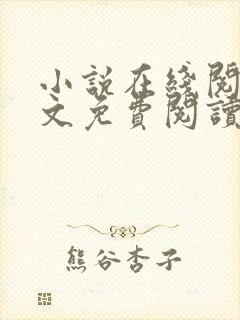 小説在綫閱
文免費閱讀
熊谷杏子